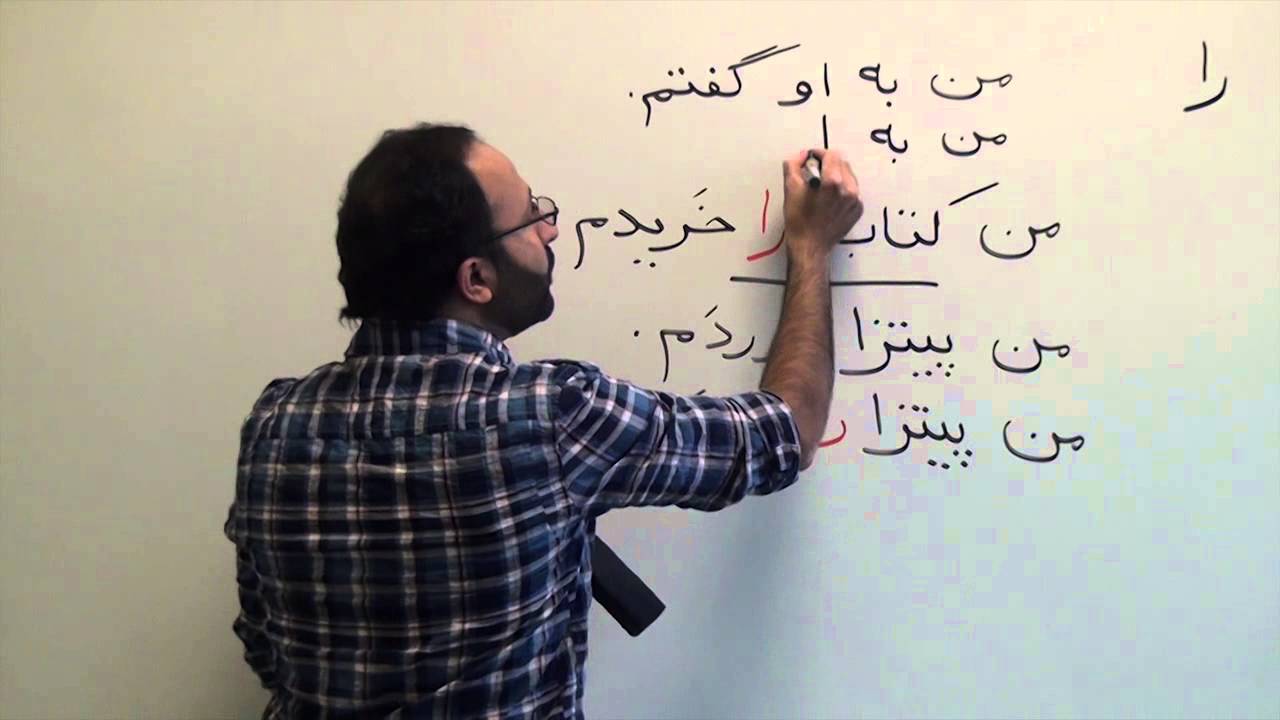 را
من به او گفتم.
من به ا
من کتاب را خَریدم
من پیتزا
من پیتزا